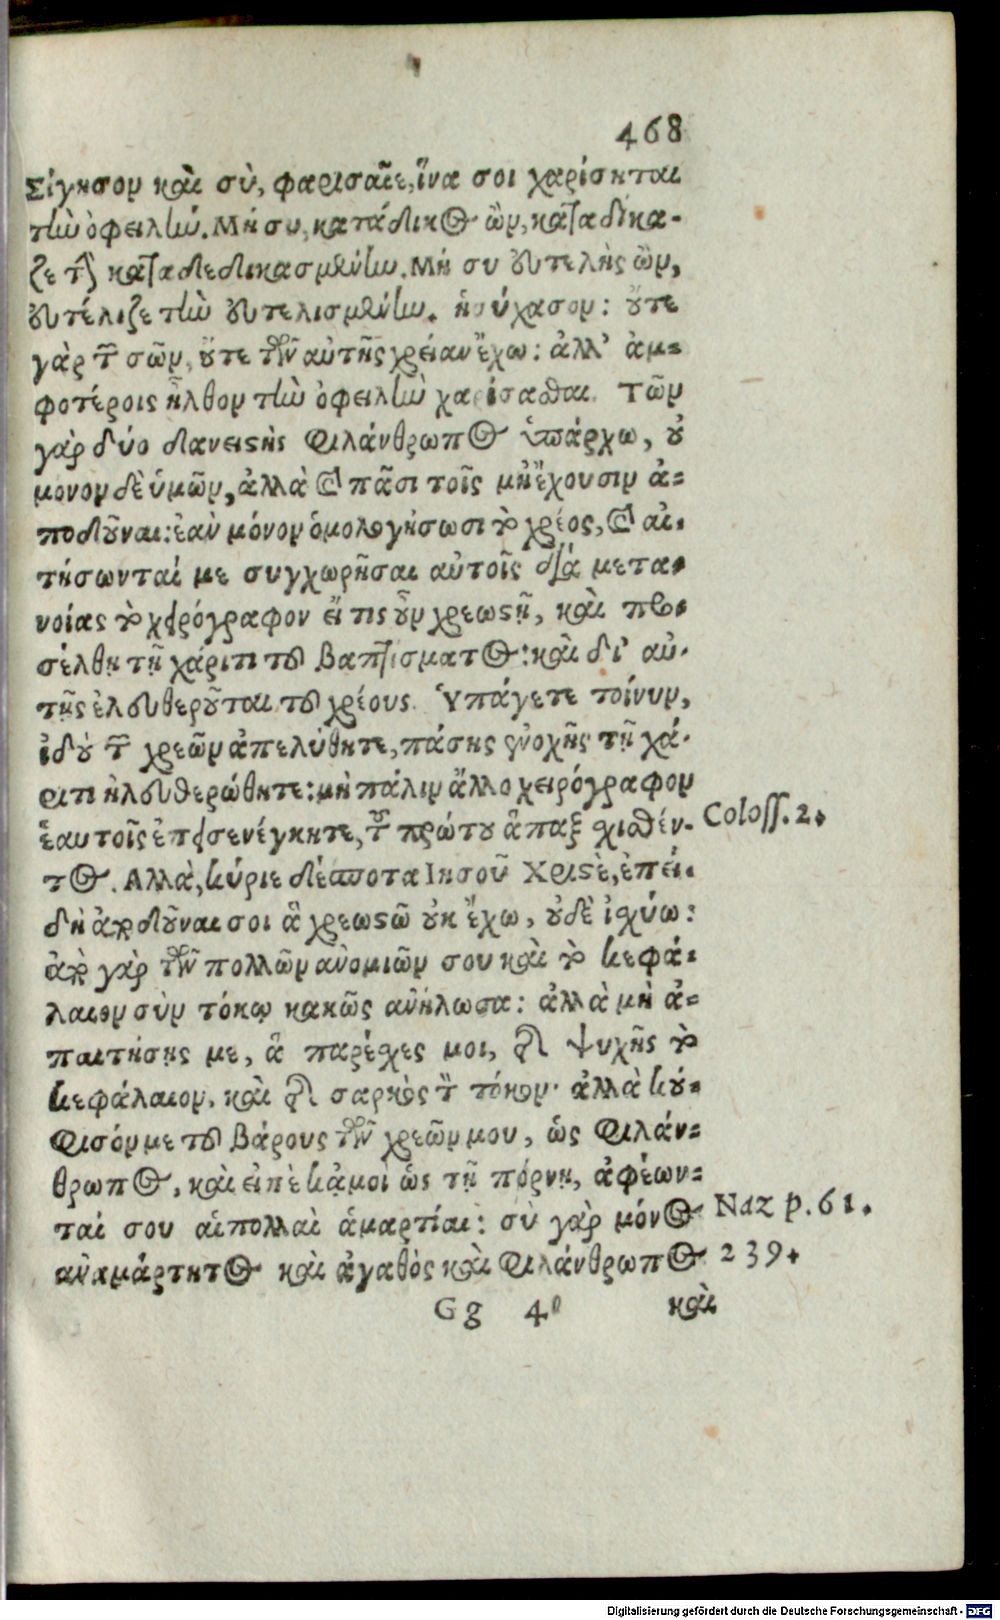 468
Σίγησον καὶ σὺ, φαρισαῖε, ἵνα σοι χαρίσηται
τὴν ὀφειλήν. Μή συ, κατάδικος ὢν, καταδίκα-
ζε τὴν καταδεδικασμένην. Μή συ εὐτελὴς ὢν,
εὐτέλιζε τὴν εὐτελισμένην. ἡσύχασον: οὔτε
γὰρ τῶν σῶν, οὔτε τῶν αὐτῆς χρείαν ἔχω: ἀλλ' ἀμ-
φοτέροις ἦλθον τὴν ὀφειλὴν χαρίσασθαι. Τῶν
γὰρ δύο δανειστὴς φιλάνθρωπος ὑπάρχω, οὐ
μόνον δὲ ὑμῶν, ἀλλὰ καὶ πᾶσι τοῖς μὴ ἔχουσιν ἀ-
ποδοῦναι: ἐὰν μόνον ὁμολογήσωσι τὸ χρέος, καὶ αἰ-
τήσωνταί με συγχωρῆσαι αὐτοῖς διὰ μετα-
νοίας τὸ χειρόγραφον εἴ τις οὖν χρεωστῇ, καὶ προ-
σέλθῃ τῇ χάριτι τοῦ βαπτίσματος: καὶ δι' αὐ-
τῆς ἐλευθεροῦται τοῦ χρέους. Ὑπάγετε τοίνυν,
ἰδοὺ τῶν χρεῶν ἀπελύθητε, πάσης ἐνοχῆς τῇ χά-
ριτι ἠλευθερώθητε: μὴ πάλιν ἄλλο χειρόγραφον
ἑαυτοῖς ἐπεισενέγκητε, τοῦ πρώτου ἅπαξ σχισθέν-
Coloss. 2.
τος. Αλλὰ, κύριε δέσποτα Ιησοῦ Χριστὲ, ἐπει-
δὴ ἀποδοῦναι σοι ἃ χρεωστῶ οὐκ ἔχω, οὐδὲ ἰσχύω:
ἀπὸ γὰρ τῶν πολλῶν ἀνομιῶν σου καὶ τὸ κεφά-
λαιον σὺν τόκῳ κακῶς ἀνήλωσα: ἀλλὰ μὴ ἀ-
παιτήσῃς με, ἃ παρέχες μοι, διὰ ψυχῆς τὸ
κεφάλαιον, καὶ διὰ σαρκὸς τὸν τόκον· ἀλλὰ κού-
φισόν με τοῦ βάρους τῶν χρεῶν μου, ὡς φιλάν-
θρωπος, καὶ εἰπὲ κἀμοὶ ὡς τῇ πόρνῃ, ἀφέων-
ταί σου αἱ πολλαὶ ἁμαρτίαι: σὺ γὰρ μόνος
Naz p. 61.
ἀναμάρτητος καὶ ἀγαθὸς καὶ φιλάνθρωπος
239.
Gg 4
καὶ
Digitalisierung gefördert durch die Deutsche Forschungsgemeinschaft - DFG